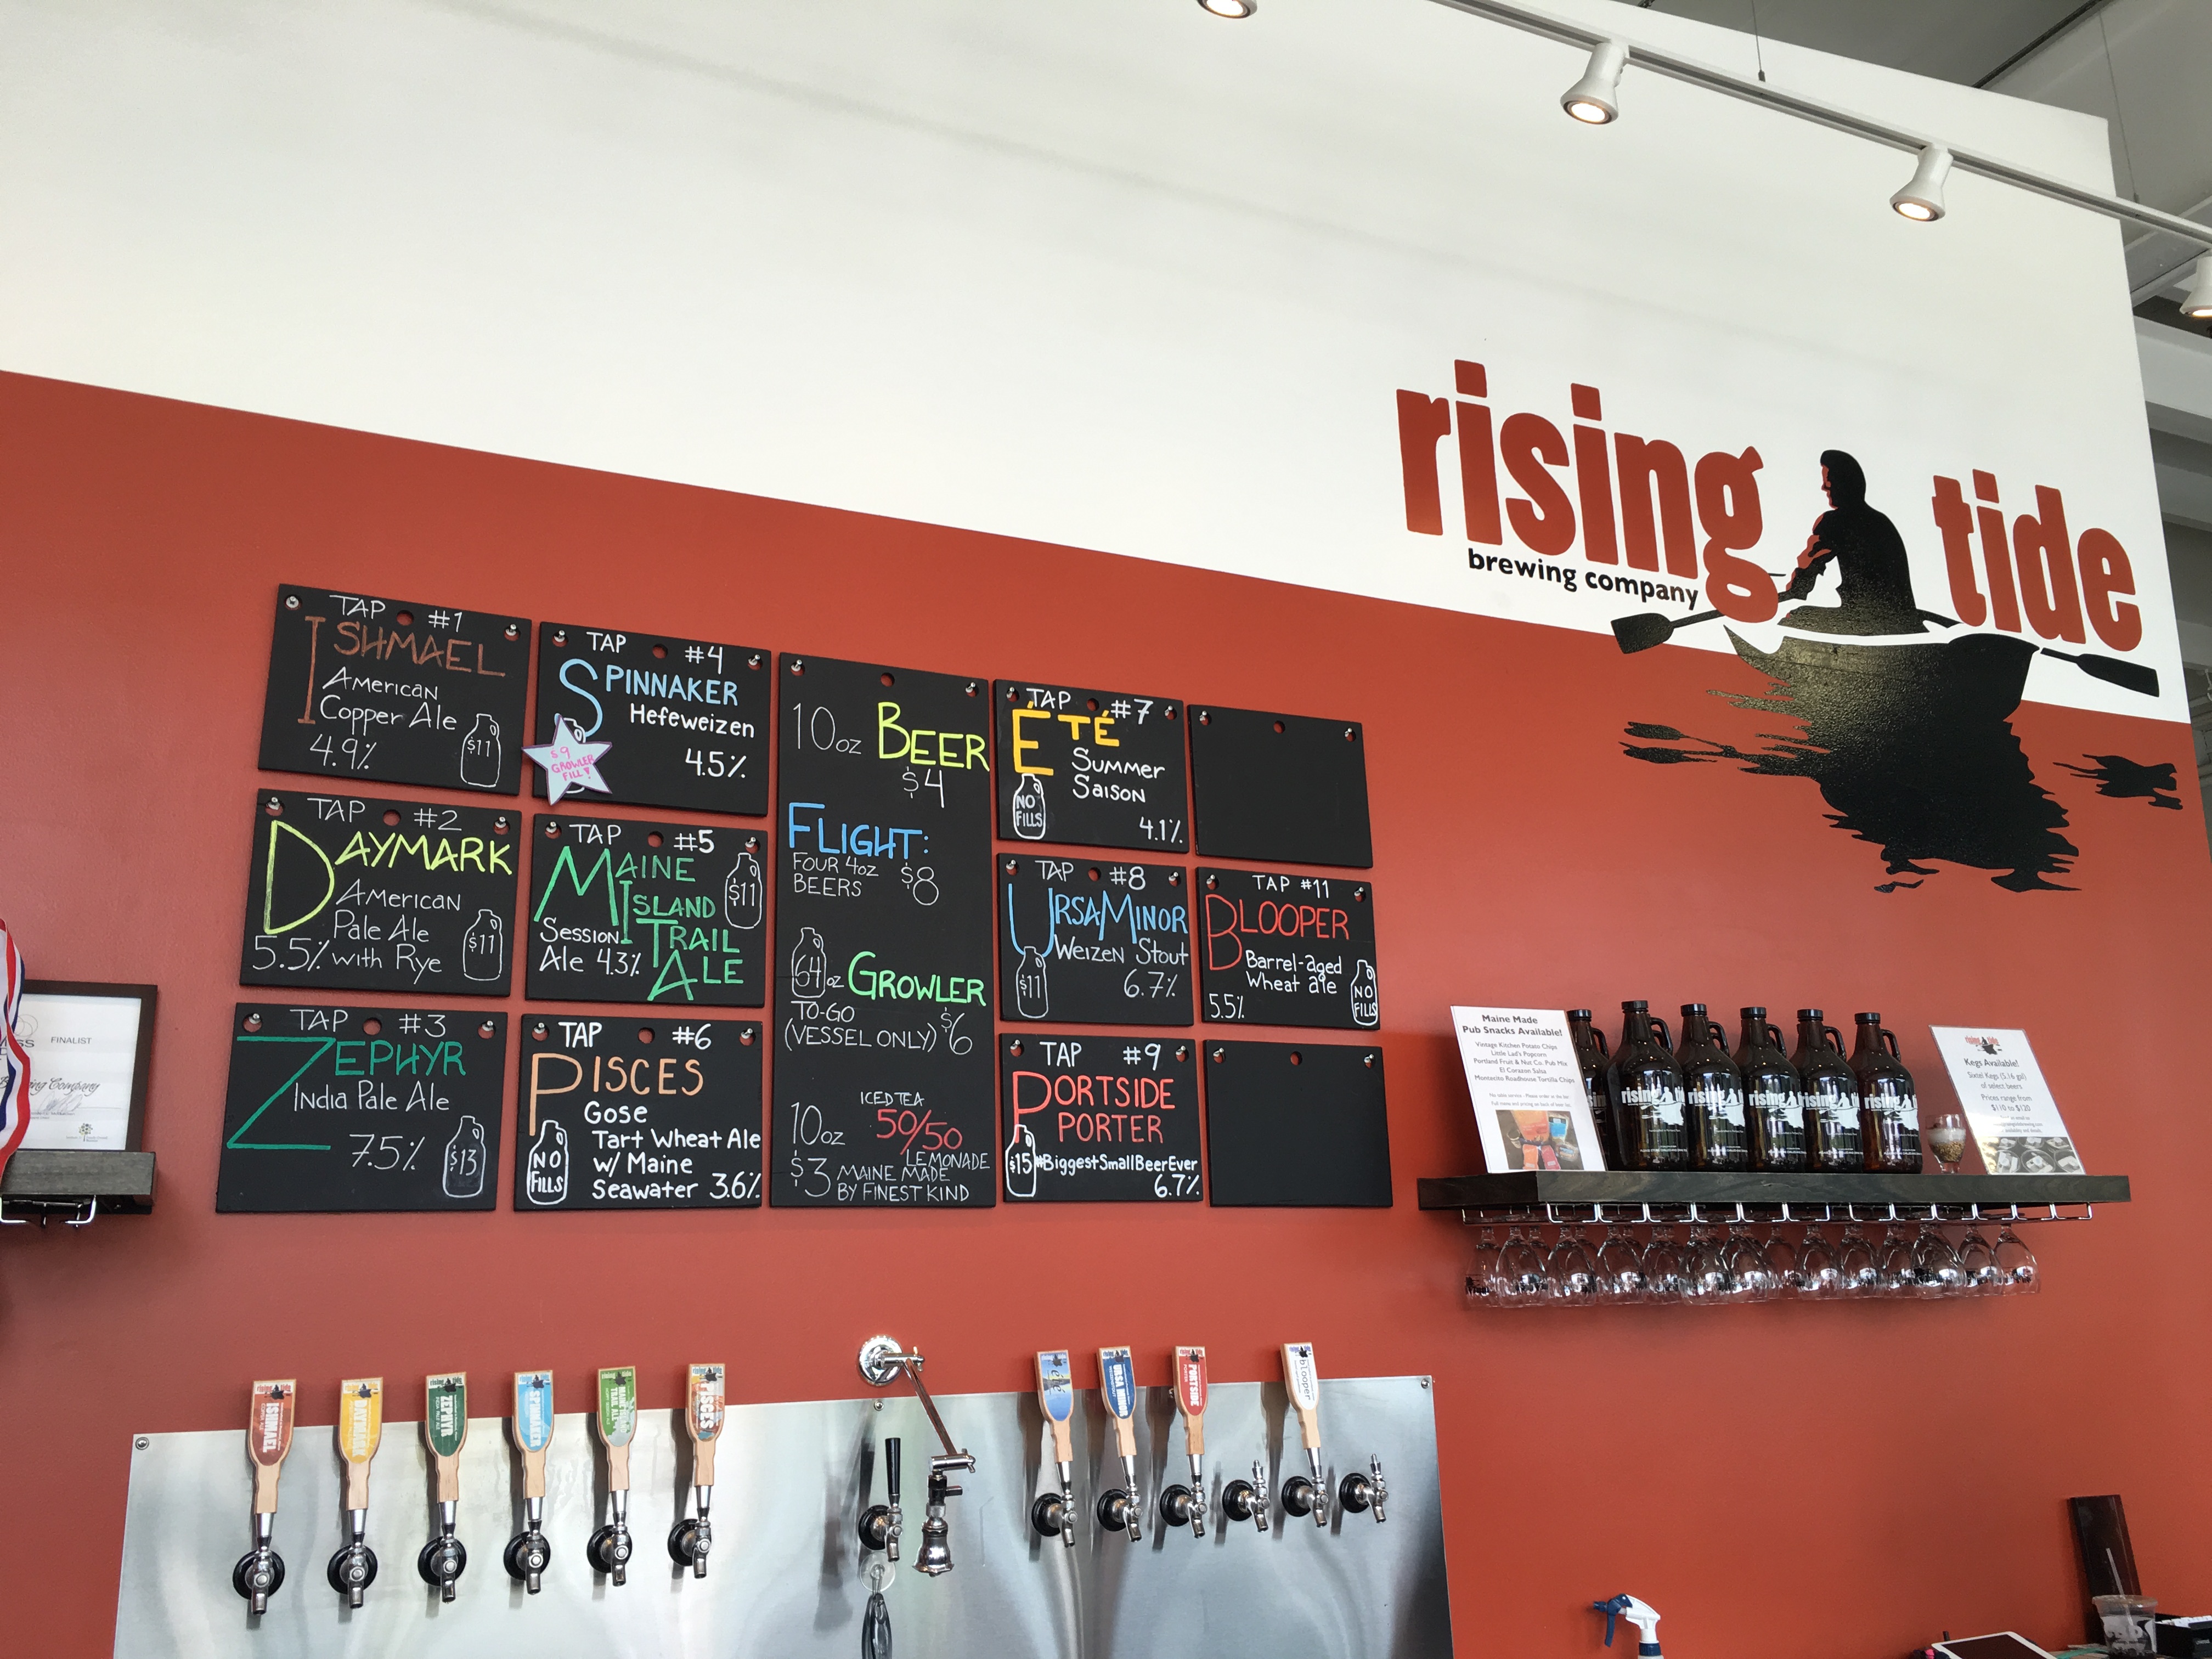 rising tide
brewing company
TAP #1
ISHMAEL
American
Copper Ale
4.9%
$11
TAP #2
DAYMARK
American
Pale Ale
5.5% with Rye
$11
TAP #3
ZEPHYR
India Pale Ale
7.5%
$13
TAP #4
SPINNAKER
Hefeweizen
4.5%
$9
GROWLER
FILL!
TAP #5
MAINE
ISLAND
TRAIL
ALE
Session
Ale 4.3%
$11
TAP #6
PISCES
Gose
Tart Wheat Ale
w/ Maine
Seawater 3.6%
NO
FILLS
10oz BEER
$4
FLIGHT:
FOUR 4oz
BEERS $8
64oz GROWLER
TO-GO
(VESSEL ONLY) $6
ICED TEA
10oz 50/50
LEMONADE
$3 MAINE MADE
BY FINEST KIND
TAP #7
ÉTÉ
Summer
Saison
4.1%
NO
FILLS
TAP #8
URSA MINOR
Weizen Stout
6.7%
$11
TAP #9
PORTSIDE
PORTER
$15 #BiggestSmallBeerEver
6.7%
TAP #11
BLOOPER
Barrel-aged
Wheat ale
5.5%
NO
FILLS
FINALIST
Maine Made
Pub Snacks Available!
Vintage Kitchen Potato Chips
Little Lad's Popcorn
Portland Fruit & Nut Co. Pub Mix
El Corazon Salsa
Montecito Roadhouse Tortilla Chips
rising
rising
rising
rising
rising
Kegs Available!
Sixtel Kegs (5.16 gal)
of select beers
Prices range from
$110 to $120
rising tide
ISHMAEL
rising tide
DAYMARK
rising tide
ZEPHYR
rising tide
SPINNAKER
rising tide
MAINE ISLAND
TRAIL ALE
PISCES
été
URSA MINOR
PORTSIDE
blooper